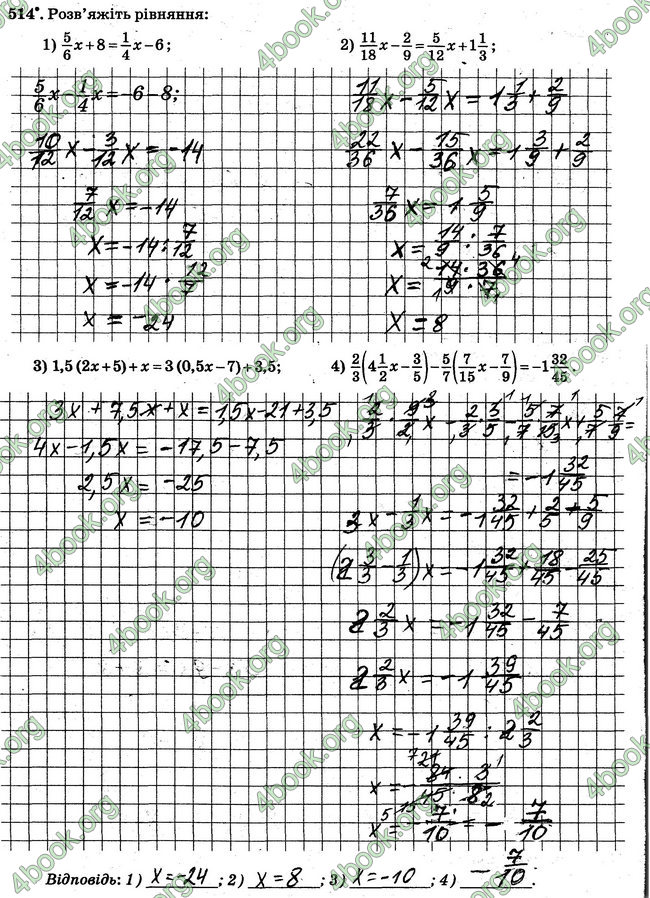 514°. Розв'яжіть рівняння:
1) 5/6 x + 8 = 1/4 x − 6;
5/6 x − 1/4 x = −6 − 8;
10/12 x − 3/12 x = −14
7/12 x = −14
x = −14 : 7/12
x = −14 · 12/7
x = −24
2) 11/18 x − 2/9 = 5/12 x + 1 1/3;
11/18 x − 5/12 x = 1 1/3 + 2/9
22/36 x − 15/36 x = 1 3/9 + 2/9
7/36 x = 1 5/9
x = 14/9 : 7/36
x = 14 · 36 / 9 · 7
x = 8
3) 1,5 (2x + 5) + x = 3 (0,5x − 7) + 3,5;
3x + 7,5 + x = 1,5x − 21 + 3,5
4x − 1,5x = −17,5 − 7,5
2,5x = −25
x = −10
4) 2/3 (4 1/2 x − 3/5) − 5/7 (7/15 x − 7/9) = −1 32/45
2/3 · 9/2 x − 2/3 · 3/5 − 5/7 · 7/15 x + 5/7 · 7/9 =
= −1 32/45
3x − 1/3 x = −1 32/45 + 2/5 − 5/9
(2 3/3 − 1/3) x = −1 32/45 + 18/45 − 25/45
2 2/3 x = −1 32/45 − 7/45
2 2/3 x = −1 39/45
x = −1 39/45 : 2 2/3
x = − 84 · 3 / 45 · 8
x = − 7/10 = − 7/10
Відповідь: 1) x = −24 ; 2) x = 8 ; 3) x = −10 ; 4) − 7/10 .
4book.org